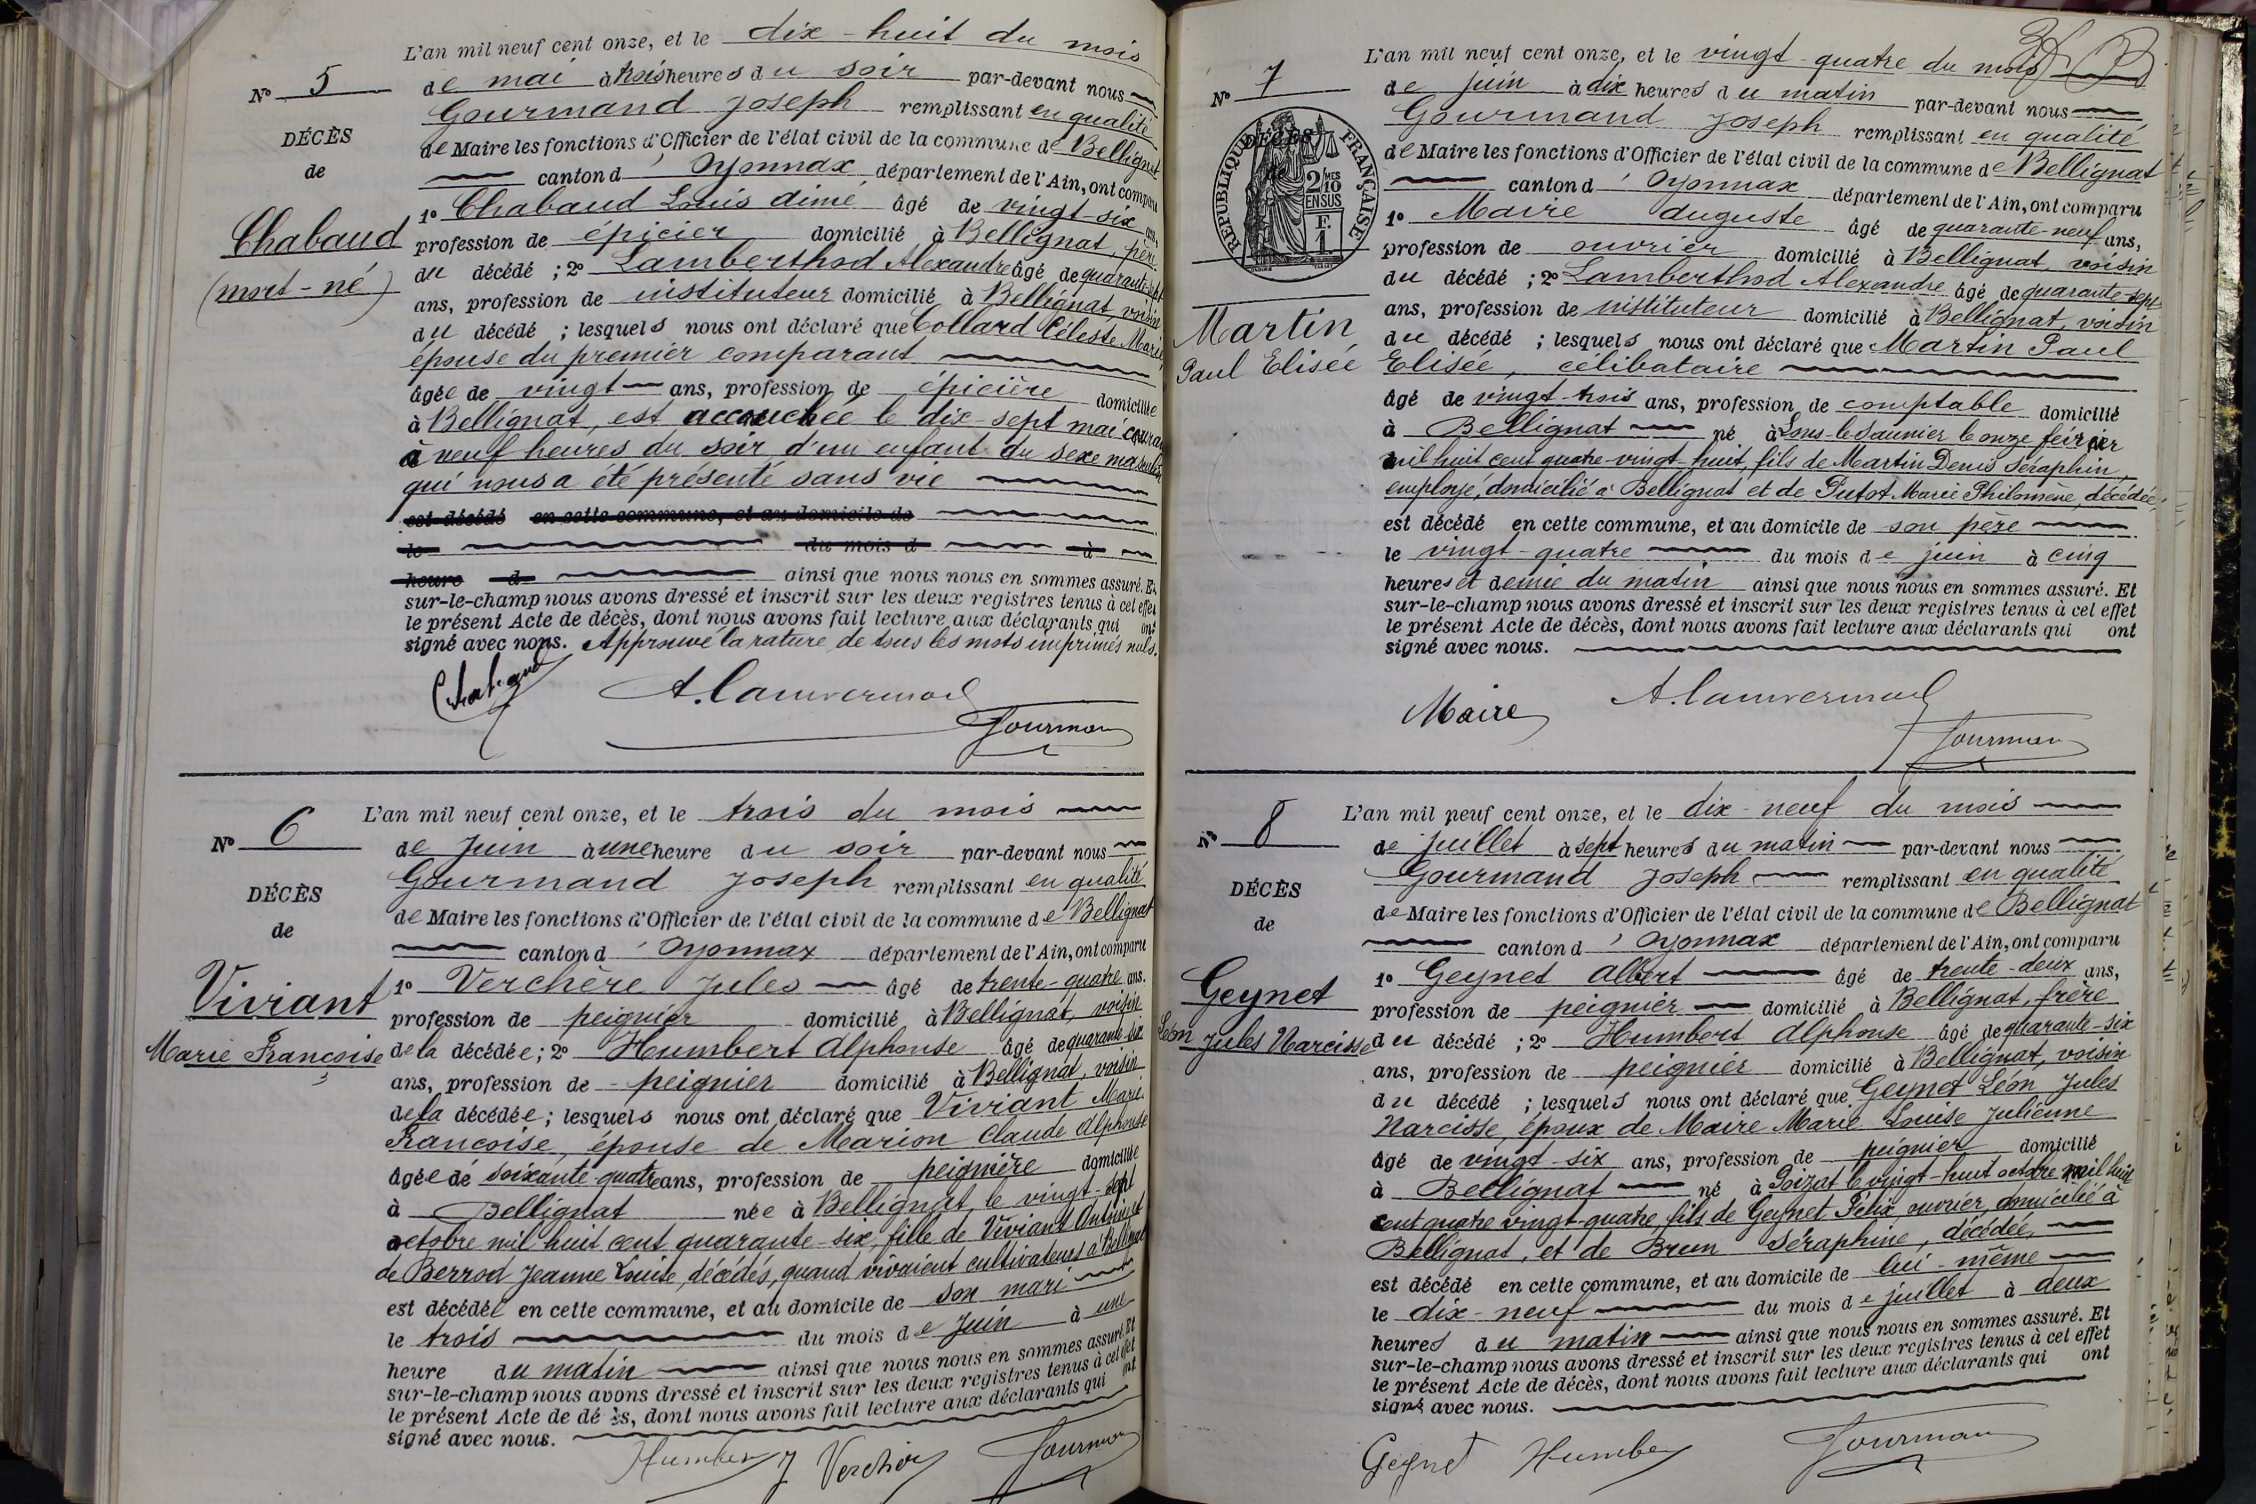 L'an mil neuf cent onze, et le dix-huit du mois
N° 5
de mai à trois heures du soir par-devant nous
Gourmand Joseph remplissant en qualité
DÉCÈS
de Maire les fonctions d'Officier de l'état civil de la commune de Bellignat
de
canton d'Oyonnax département de l'Ain, ont comparu
1° Chabaud Louis Aimé âgé de vingt-six ans,
Chabaud
profession de épicier domicilié à Bellignat, père
du décédé ; 2° Lamberthod Alexandre âgé de quarante-sept
(mort-né)
ans, profession de instituteur domicilié à Bellignat voisin
du décédé ; lesquels nous ont déclaré que Collard Céleste Marie
épouse du premier comparant
âgée de vingt ans, profession de épicière domiciliée
à Bellignat, est accouchée le dix-sept mai courant
à neuf heures du soir d'un enfant du sexe masculin
qui nous a été présenté sans vie
est décédé en cette commune, et au domicile de
le du mois d à
heure d ainsi que nous nous en sommes assuré. Et
sur-le-champ nous avons dressé et inscrit sur les deux registres tenus à cet effet
le présent Acte de décès, dont nous avons fait lecture aux déclarants qui ont
signé avec nous. Approuvé la rature de tous les mots imprimés nuls.
Chabaud
Gourman
L'an mil neuf cent onze, et le trois du mois
N° 6
de juin à une heure du soir par-devant nous
Gourmand Joseph remplissant en qualité
DÉCÈS
de Maire les fonctions d'Officier de l'état civil de la commune de Bellignat
de
canton d'Oyonnax département de l'Ain, ont comparu
1° Verchère Jules âgé de trente-quatre ans.
Viviant
profession de peignier domicilié à Bellignat, voisin
Marie Françoise
de la décédée; 2° Humbert Alphonse âgé de quarante-six
ans, profession de peignier domicilié à Bellignat, voisin
de la décédée; lesquels nous ont déclaré que Viviant Marie
Françoise, épouse de Marion Claude Alphonse
âgée de soixante-quatre ans, profession de peignière domiciliée
à Bellignat née à Bellignat, le vingt-sept
octobre mil huit cent quarante-six, fille de Viviant
de Berrod Jeanne Louise, décédés, quand vivaient cultivateurs à Bellignat
est décédée en cette commune, et au domicile de son mari
le trois du mois de juin à une
heure du matin ainsi que nous nous en sommes assuré. Et
sur-le-champ nous avons dressé et inscrit sur les deux registres tenus à cet effet
le présent Acte de décès, dont nous avons fait lecture aux déclarants qui ont
signé avec nous.
Humbert J Verchère Gourman
L'an mil neuf cent onze, et le vingt-quatre du mois
N° 7
de juin à dix heures du matin par-devant nous
Gourmand Joseph remplissant en qualité
DÉCÈS
de Maire les fonctions d'Officier de l'état civil de la commune de Bellignat
de
RÉPUBLIQUE FRANÇAISE
2/10 MES EN SUS
F. 1
canton d'Oyonnax département de l'Ain, ont comparu
1° Maire Auguste âgé de quarante-neuf ans,
profession de ouvrier domicilié à Bellignat, voisin
du décédé ; 2° Lamberthod Alexandre âgé de quarante-sept
ans, profession de instituteur domicilié à Bellignat, voisin
Martin
du décédé ; lesquels nous ont déclaré que Martin Paul
Paul Elisée
Elisée, célibataire
âgé de vingt-trois ans, profession de comptable domicilié
à Bellignat né à Lons-le-Saunier le onze février
mil huit cent quatre-vingt-huit, fils de Martin Denis Séraphin,
employé, domicilié à Bellignat et de Putot Marie Philomène, décédée,
est décédé en cette commune, et au domicile de son père
le vingt-quatre du mois de juin à cinq
heures et demie du matin ainsi que nous nous en sommes assuré. Et
sur-le-champ nous avons dressé et inscrit sur les deux registres tenus à cet effet
le présent Acte de décès, dont nous avons fait lecture aux déclarants qui ont
signé avec nous.
Maire
Gourman
L'an mil neuf cent onze, et le dix-neuf du mois
N° 8
de juillet à sept heures du matin par-devant nous
Gourmand Joseph remplissant en qualité
DÉCÈS
de Maire les fonctions d'Officier de l'état civil de la commune de Bellignat
de
canton d'Oyonnax département de l'Ain, ont comparu
1° Geynet Albert âgé de trente-deux ans,
Geynet
profession de peignier domicilié à Bellignat, frère
Léon Jules Narcisse
du décédé ; 2° Humbert Alphonse âgé de quarante-six
ans, profession de peignier domicilié à Bellignat, voisin
du décédé ; lesquels nous ont déclaré que Geynet Léon Jules
Narcisse, époux de Maire Marie Louise Julienne
âgé de vingt-six ans, profession de peignier domicilié
à Bellignat né à Poizat le vingt-huit octobre mil huit
cent quatre-vingt-quatre, fils de Geynet Félix, ouvrier, domicilié à
Bellignat, et de Brun Séraphine, décédée,
est décédé en cette commune, et au domicile de lui-même
le dix-neuf du mois de juillet à deux
heures du matin ainsi que nous nous en sommes assuré. Et
sur-le-champ nous avons dressé et inscrit sur les deux registres tenus à cet effet
le présent Acte de décès, dont nous avons fait lecture aux déclarants qui ont
signé avec nous.
Geynet Humbert Gourman